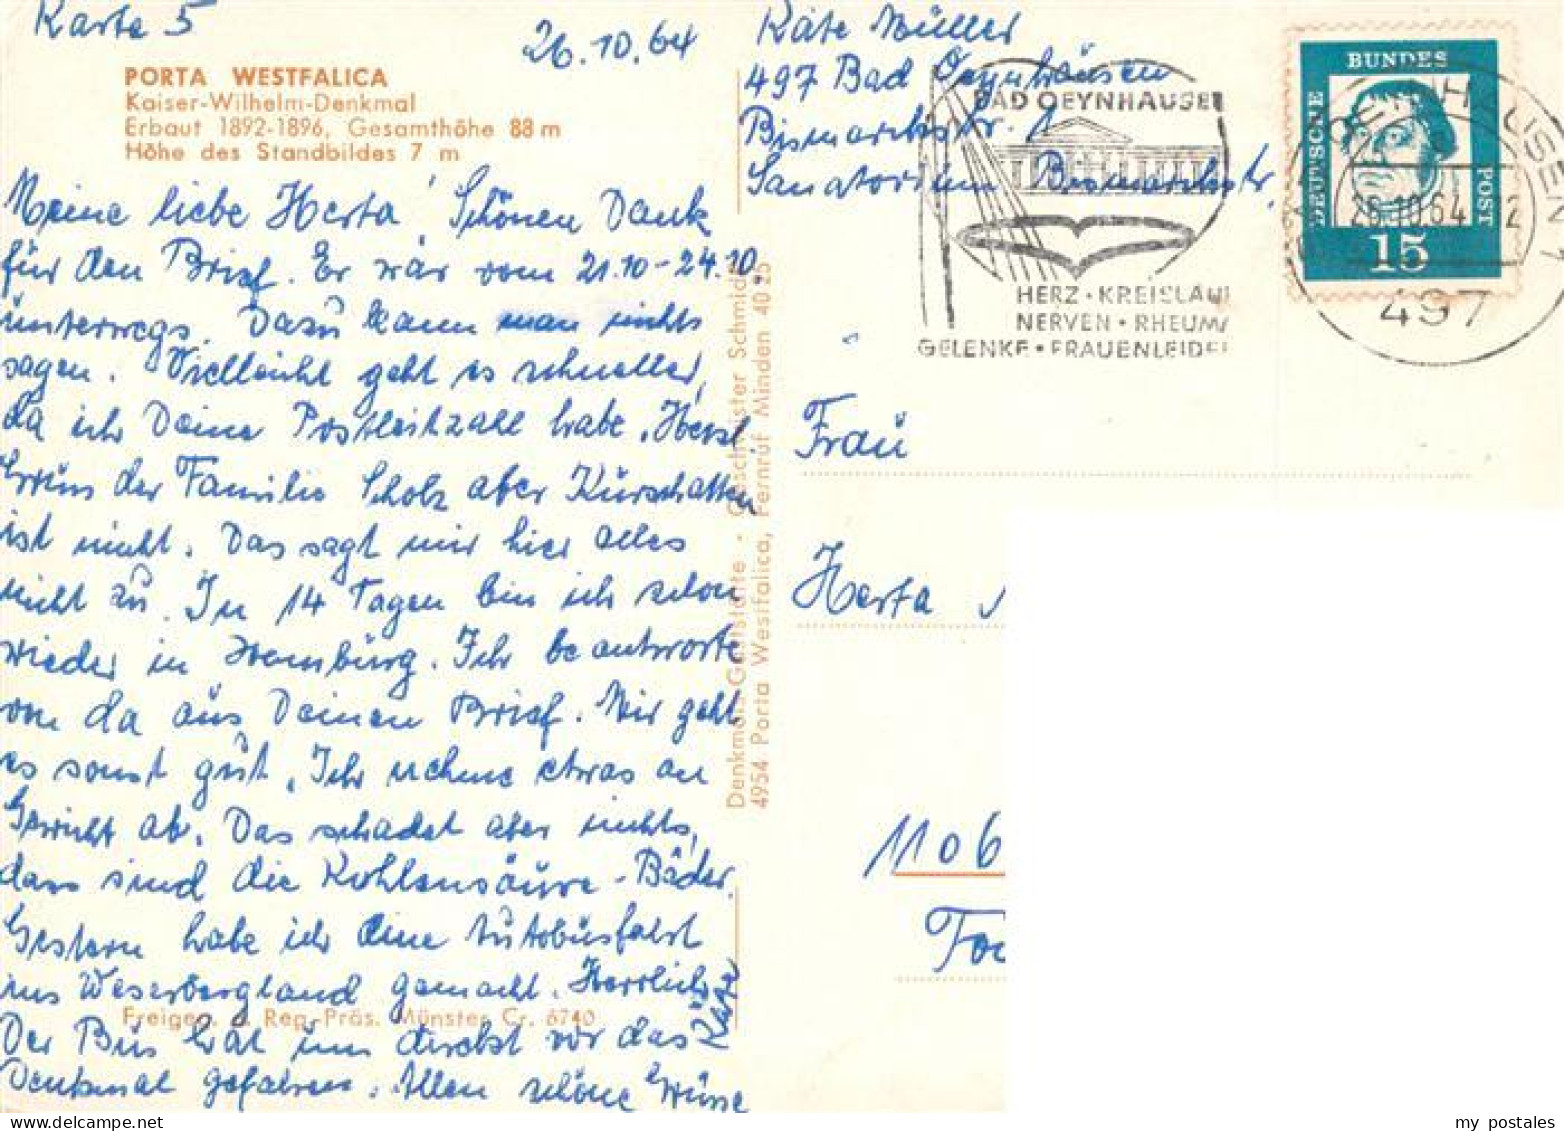 Karte 5
26.10.64
PORTA WESTFALICA
Kaiser-Wilhelm-Denkmal
Erbaut 1892-1896, Gesamthöhe 88 m
Höhe des Standbildes 7 m
Meine liebe Herta! Schönen Dank
für den Brief. Er war vom 21.10-24.10.
unterwegs. Dazu kann man nichts
sagen. Vielleicht geht es schneller,
da ich Deine Postleitzahl habe. Herzl.
Grüss der Familie Scholz aber Kurschatten
ist nicht. Das sagt mir hier alles
nicht zu. In 14 Tagen bin ich schon
wieder in Hamburg. Ich beantworte
von da aus Deinen Brief. Mir geht
es sonst gut. Ich nehme etwas an
Gewicht ab. Das schadet aber nichts,
dass sind die Kohlensäure-Bäder.
Gestern habe ich eine Autobusfahrt
ins Weserbergland gemacht. Herrlich
Der Bus hat uns direkt vor das
Denkmal gefahren. Allen schöne Grüsse
Käte
Freigeg. Reg.-Präs. Münster Cr. 6740
Denkmals-Gaststätte · Geschwister Schmidt
4954 Porta Westfalica, Fernruf Minden 40 25
Käte Müller
497 Bad Oeynhausen
Bismarckstr. 1
Sanatorium Bismarckstr.
BAD OEYNHAUSE
HERZ · KREISLAU
NERVEN · RHEUMA
GELENKE · FRAUENLEIDE
DEUTSCHE
BUNDES
POST
15
OEYNHAUSEN 1
26.10.64
497
Frau
Herta
1106
my postales